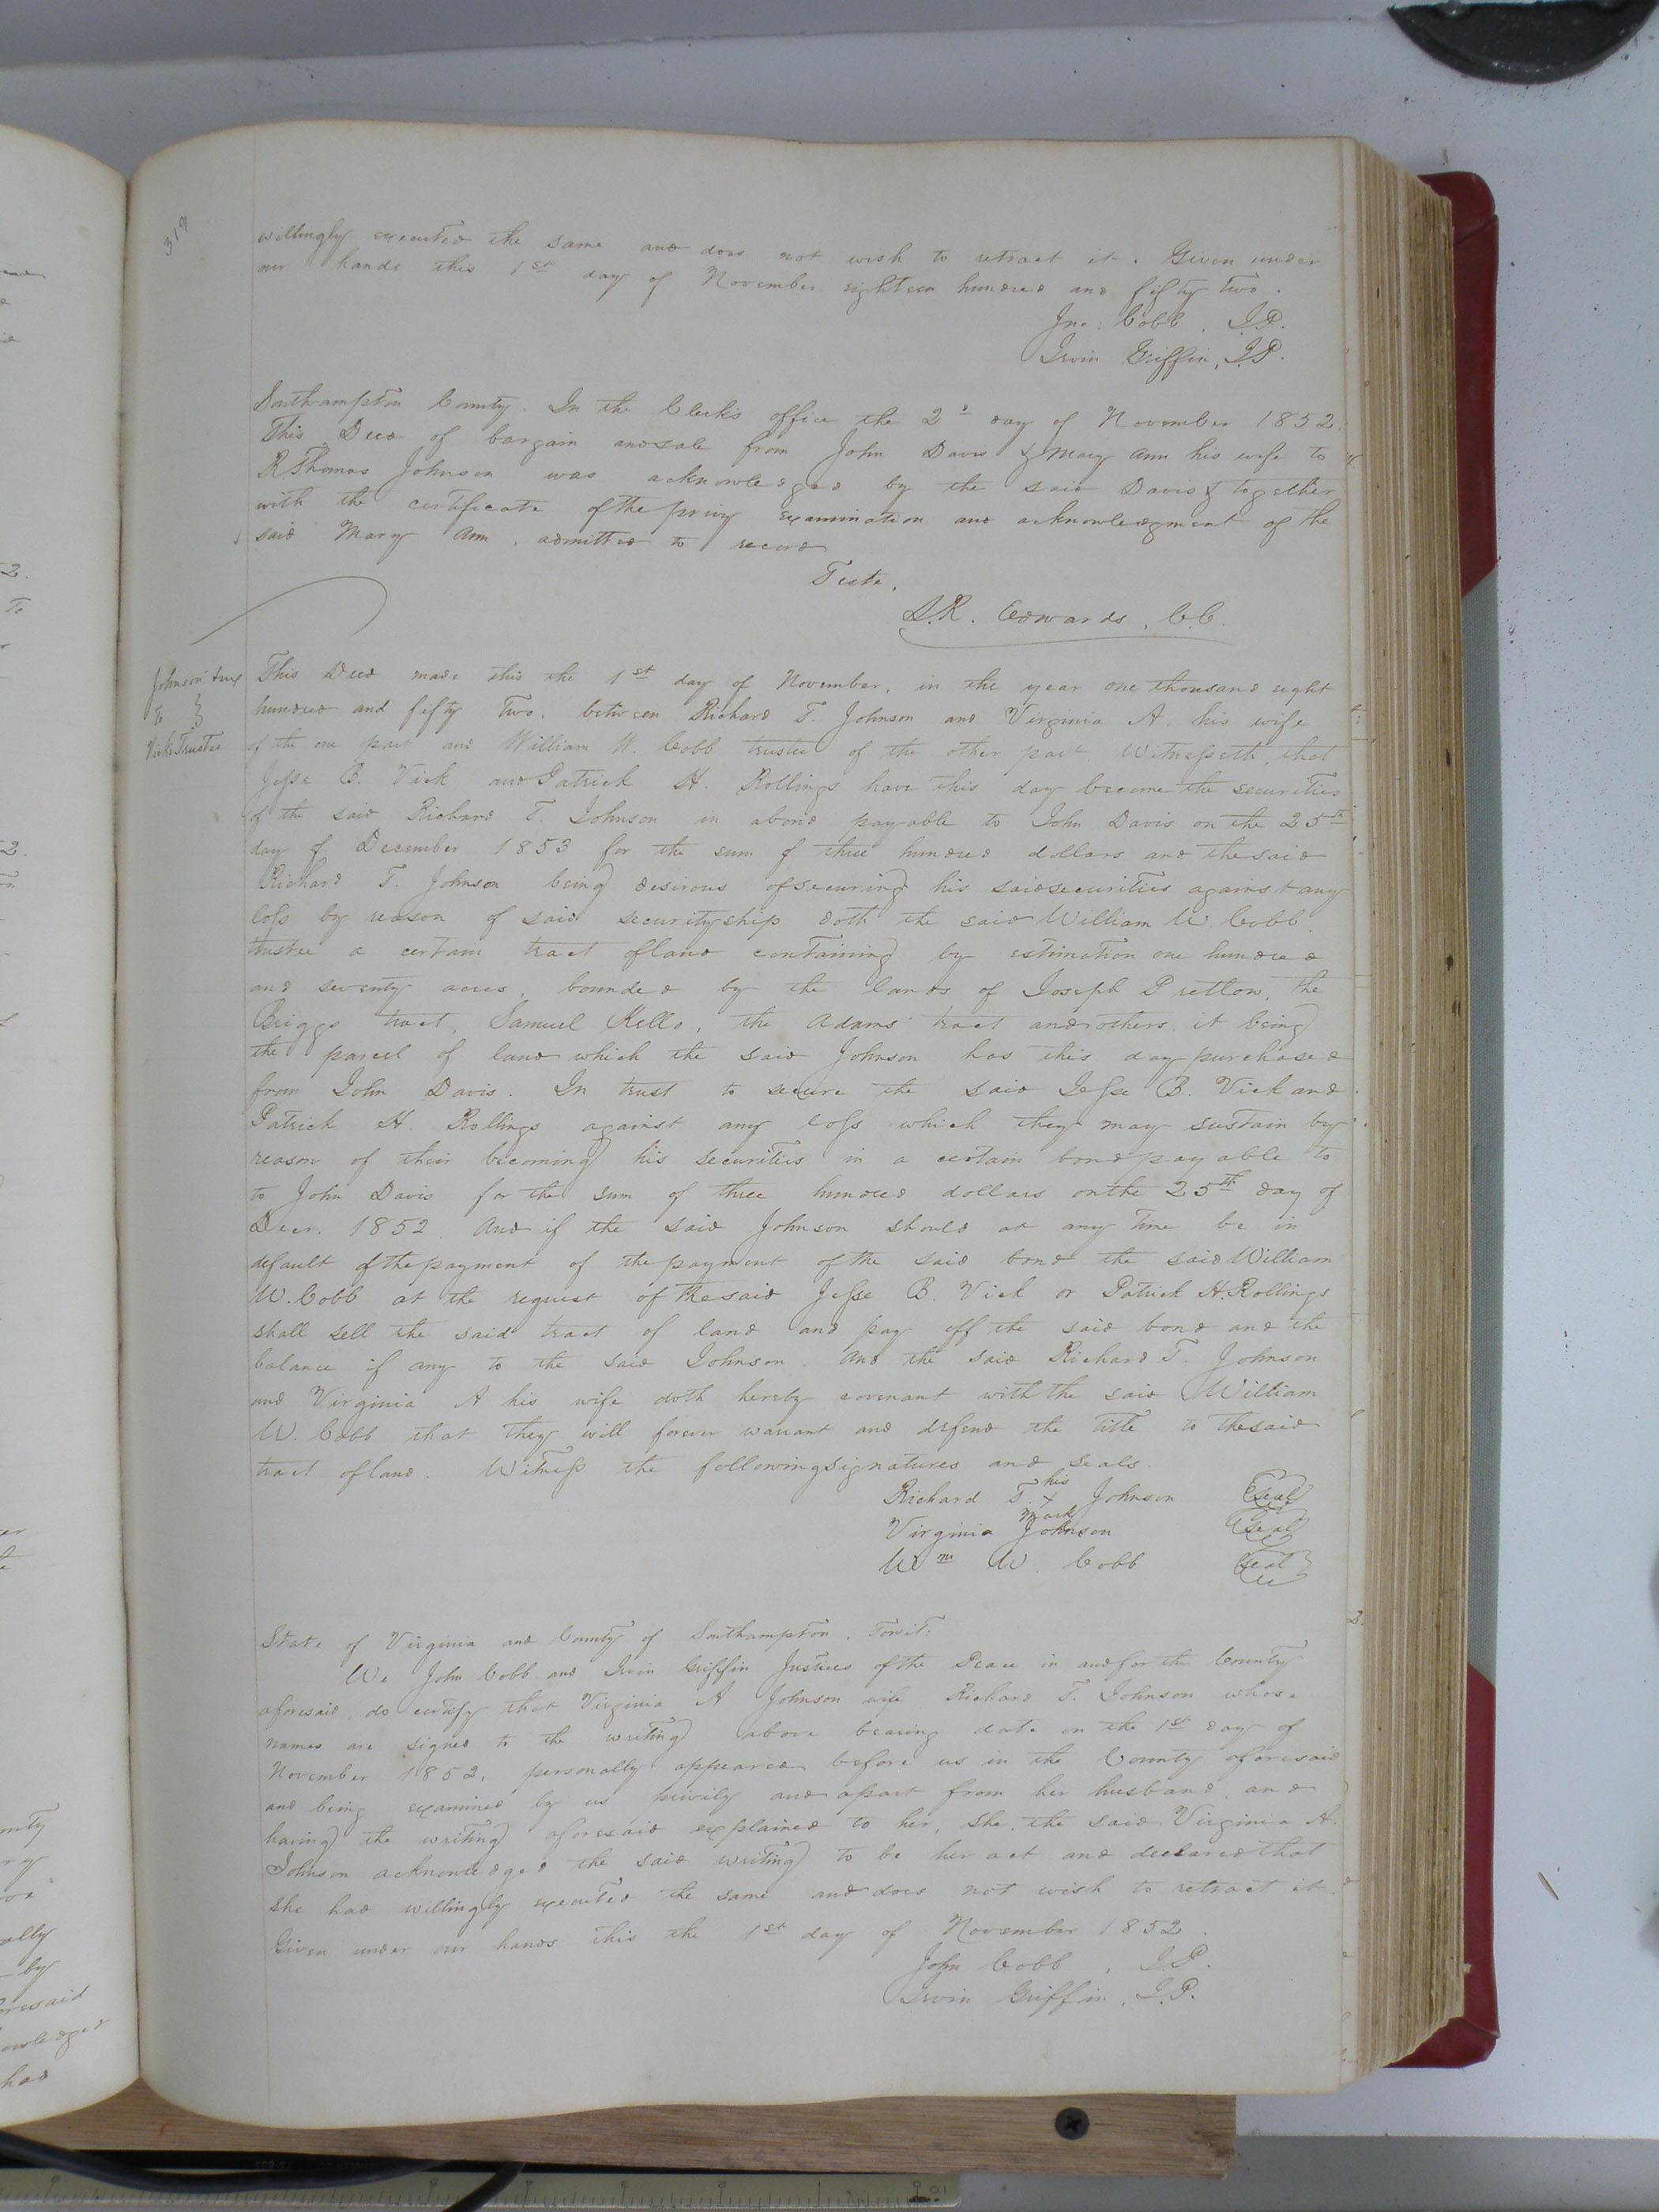 319
willingly executed the same and does not wish to retract it. Given under
our hands this 1st day of November eighteen hundred and fifty two.
Jno. Cobb, J.P.
Irvin Griffin, J.P.
Southampton County. In the Clerk's office the 2d day of November 1852.
This Deed of bargain and sale from John Davis & Mary Ann his wife to
R Thomas Johnson was acknowledged by the said Davis & together
with the certificate of the privy examination and acknowledgment of the
said Mary Ann, admitted to record
Teste,
L.R. Edwards, C.C.
Johnson &ux
to }
Vick's Trustee
This Deed made this the 1st day of November, in the year one thousand eight
hundred and fifty two, between Richard T. Johnson and Virginia A. his wife
of the one part and William W. Cobb trustee of the other part. Witnesseth, that
Jesse B. Vick and Patrick H. Rollings have this day become the securities
of the said Richard T. Johnson in a bond payable to John Davis on the 25th
day of December 1853 for the sum of three hundred dollars and the said
Richard T. Johnson being desirous of securing his said securities against any
loss by reason of said securityship doth the said William W. Cobb
trustee a certain tract of land containing by estimation one hundred
and seventy acres, bounded by the lands of Joseph Pretlow, the
Briggs tract, Samuel Kello, the Adams tract and others, it being
the parcel of land which the said Johnson has this day purchased
from John Davis. In trust to secure the said Jesse B. Vick and
Patrick H. Rollings against any loss which they may sustain by
reason of their becoming his securities in a certain bond payable to
to John Davis for the sum of three hundred dollars on the 25th day of
Decr. 1852. And if the said Johnson should at any time be in
default of the payment of the payment of the said bond the said William
W. Cobb at the request of the said Jesse B. Vick or Patrick H. Rollings
shall sell the said tract of land and pay off the said bond and the
balance if any to the said Johnson. And the said Richard T. Johnson
and Virginia A his wife doth hereby covenant with the said William
W. Cobb that they will forever warrant and defend the title to the said
tract of land. Witness the following signatures and seals.
his
Richard T. x Johnson Seal
mark
Virginia Johnson Seal
Wm W. Cobb Seal
State of Virginia and County of Southampton, Towit:
We John Cobb and Irvin Griffin Justices of the Peace in and for the County
aforesaid, do certify that Virginia A Johnson wife Richard T. Johnson whose
names are signed to the writing above bearing date on the 1st day of
November 1852, personally appeared before us in the County aforesaid
and being examined by us privily and apart from her husband, and
having the writing aforesaid explained to her, she, the said Virginia A.
Johnson acknowledged the said writing to be her act and declared that
she had willingly executed the same and does not wish to retract it.
Given under our hands this the 1st day of November 1852.
John Cobb, J.P.
Irvin Griffin, J.P.